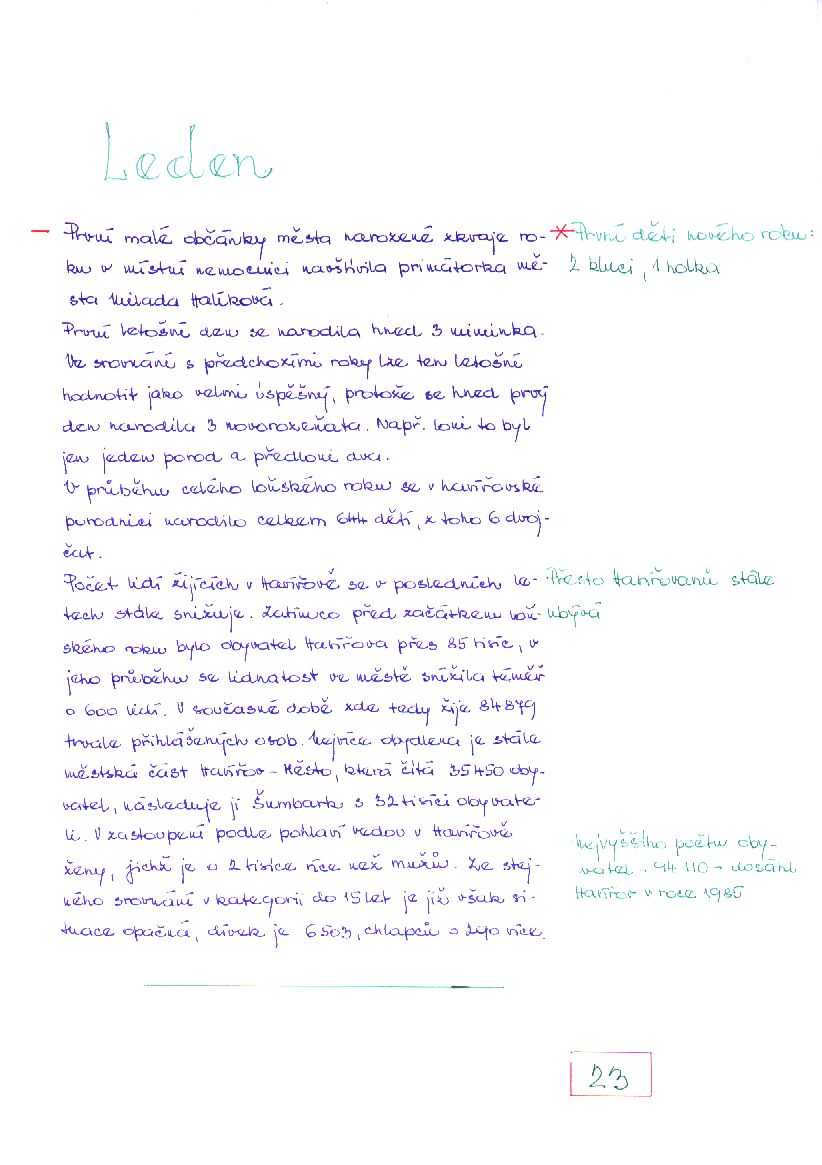 Leden
První malé občánky města narozené zkraje ro-
ku v místní nemocnici navštívila primátorka mě-
sta Milada Halíková.
První letošní den se narodila hned 3 miminka.
Ve srovnání s předchozími roky lze ten letošní
hodnotit jako velmi úspěšný, protože se hned prvý
den narodila 3 novorozeňata. Např. loni to byl
jen jeden porod a předloni dva.
V průběhu celého loňského roku se v havířovské
porodnici narodilo celkem 644 dětí, z toho 6 dvoj-
čat.
Počet lidí žijících v Havířově se v posledních le-
tech stále snižuje. Zatímco před začátkem loň-
ského roku bylo obyvatel Havířova přes 85 tisíc, v
jeho průběhu se lidnatost ve městě snížila téměř
o 600 lidí. V současné době zde tedy žije 84 879
trvale přihlášených osob. Nejvíce obydlena je stále
městská část Havířov - Město, která čítá 35 450 oby-
vatel, následuje ji Šumbark s 32 tisíci obyvate-
li. V zastoupení podle pohlaví vedou v Havířově
ženy, jichž je o 2 tisíce více než mužů. Ze stej-
ného srovnání v kategorii do 15 let je již však si-
tuace opačná, dívek je 6 503, chlapců o 290 více.
* První děti nového roku:
2 kluci, 1 holka
Přesto Havířovanů stále
ubývá
Nejvyššího počtu oby-
vatel - 94 110 - dosáhl
Havířov v roce 1985
23